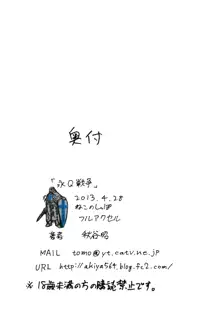 奥付
「氷の戦争」
2013.4.28
ねこのしっぽ
フルアクセル
著者 秋谷昭
MAIL tomo@yt.catv.ne.jp
URL http://akiya564.blog.fc2.com/
※18歳未満の方の購読禁止です。